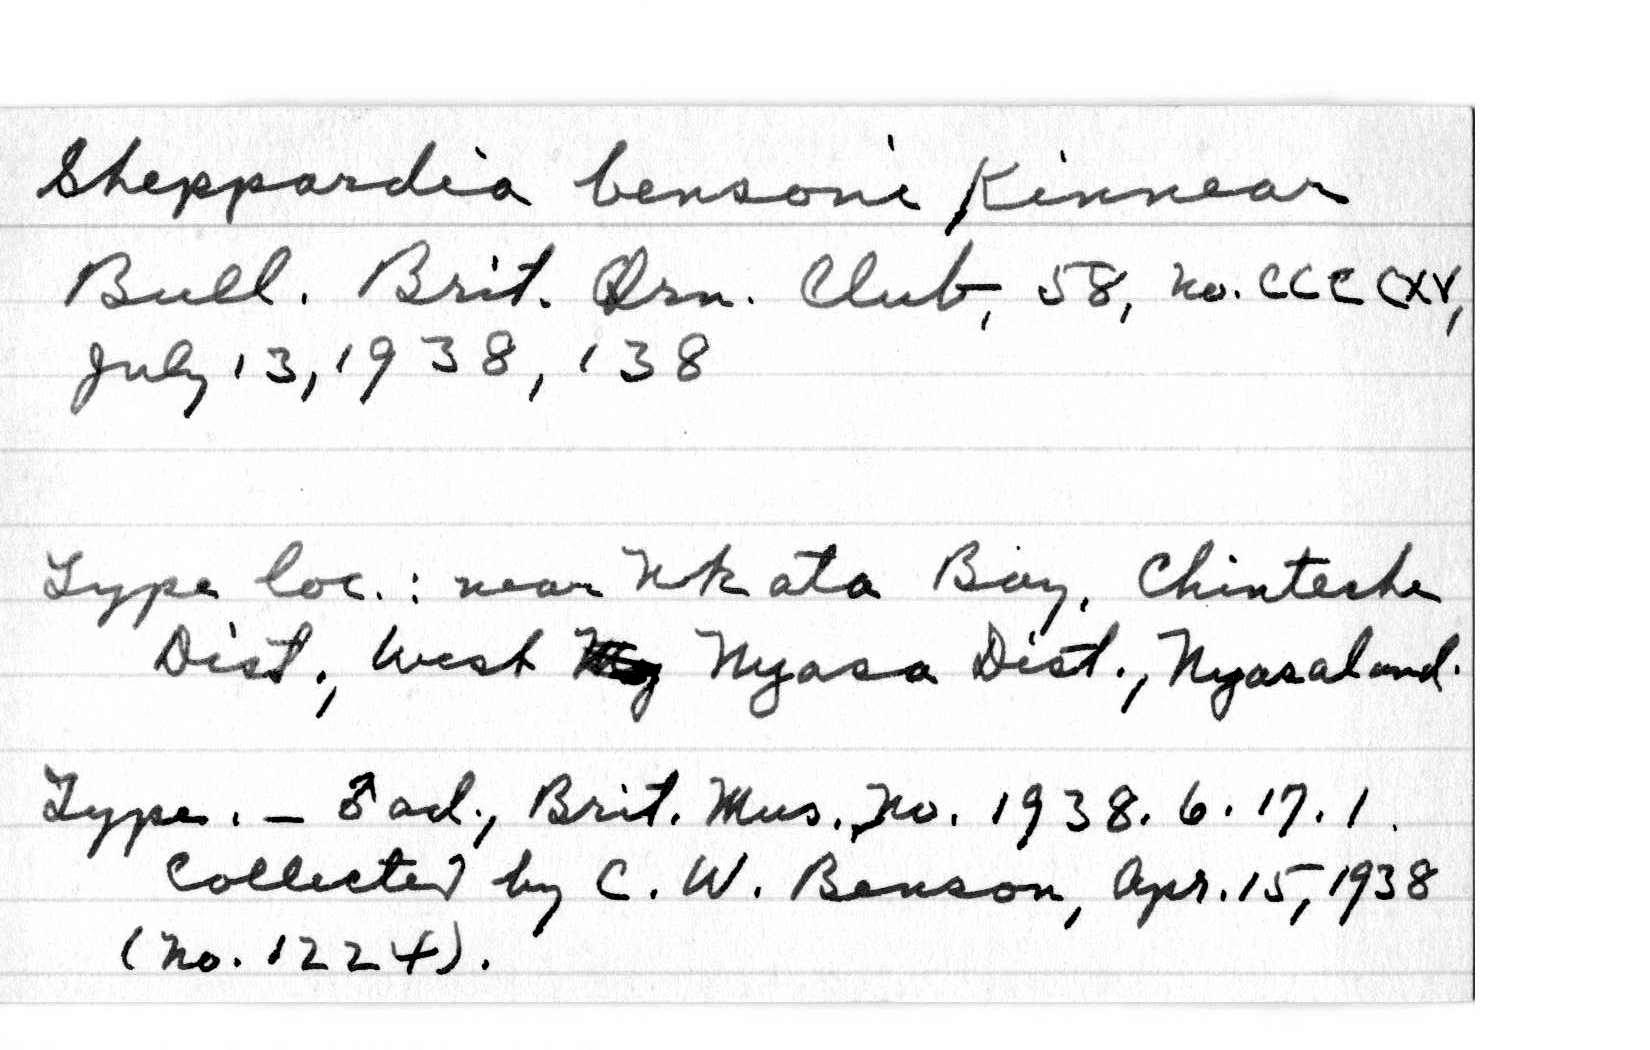 Sheppardia bensoni Kinnear
Bull. Brit. Orn. Club, 58, no. CCCCXV,
July 13, 1938, 138
Type loc.: near Nkata Bay, Chinteche
Dist., West Nyasa Dist., Nyasaland.
Type. – ♂ ad., Brit. Mus. No. 1938.6.17.1.
Collected by C. W. Benson, Apr. 15, 1938
(no. 1224).